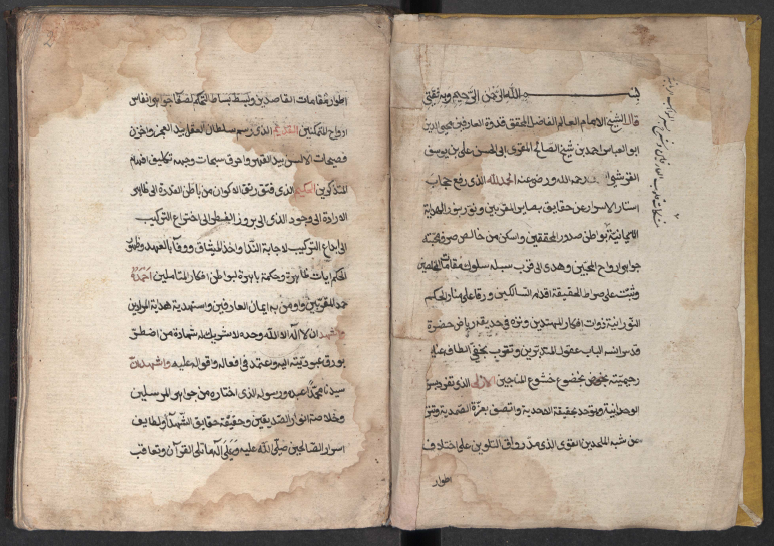 بسم الله الرحمن الرحيم وبه ثقتي
قال الشيخ الامام العالم الفاضل المحقق قدوة العارفين محيي الدين
ابو العباس احمد بن شيخ الصالح المقري ابي الحسن علي بن يوسف
القرشي رحمه الله ورضي عنه الحمد لله الذي رفع حجاب
استار الاسرار عن حقايق بصاير المقربين ونور بنور الهداية
الايمانية بواطن صدور المحققين واسكن من خالص صرف محبته
جواهر ارواح المحبين وهدى الى قرب سبله سلوك مقامات
وثبت على صراط الحقيقة اقدام السالكين ورقا على منار الحكم
النورانية ذوات افكار المهتدين ونزه في حديقة رياض حضرة
قدس انسه الباب عقول المتدبرين وتقرب بخفي الطافه
رحيميته بخضوع خشوع المناجين الازلي الذي تفرد بسر
الوحدانية وتوحد بحقيقة الاحدية واتصف بعزة الصمدية وتنزه
عن شبه الملحدين القوي الذي مد رواق التلوين على اختلاف
اطوار
اطوار مقامات القاصدين وبسط بساط التمكم لصفا جواهر انفاس
ارواح المتمكنين القديم الذي رسم سلطان العقل بيد العجز واخرن
فصيحات الالسن بيد القهر واحرق سبحات وجهه تكاليف افهام
المتذكرين الحكيم الذي فتق رتق الاكوان من باطن القدرة الى ظاهر
الارادة الى وجود الذي الى بروز الخط الى اختراع التركيب
الى ابداع التركيب لاجابة الندا واخذ الميثاق ووفا بالعهد وظهر
الحكم ايات ظاهرة وحكمة باهرة بواطن افكار المتاملين احمده
حمد المقربين واومن به ايمان العارفين واستهديه هداية الموالين
واشهد ان لا اله الا الله وحده لا شريك له شهادة من اضطق
بورق عبوديته اليه وعتمد في افعاله واقواله عليه واشهد ان
سيدنا محمدا عبده ورسوله الذي اختاره من جواهر المرسلين
وخلاصة انوار الصديقين وحقيقة حقايق الشهدا ولطايف
اسرار الصالحين صلى الله عليه وعلى اله ما تلي القرآن وتعاقب